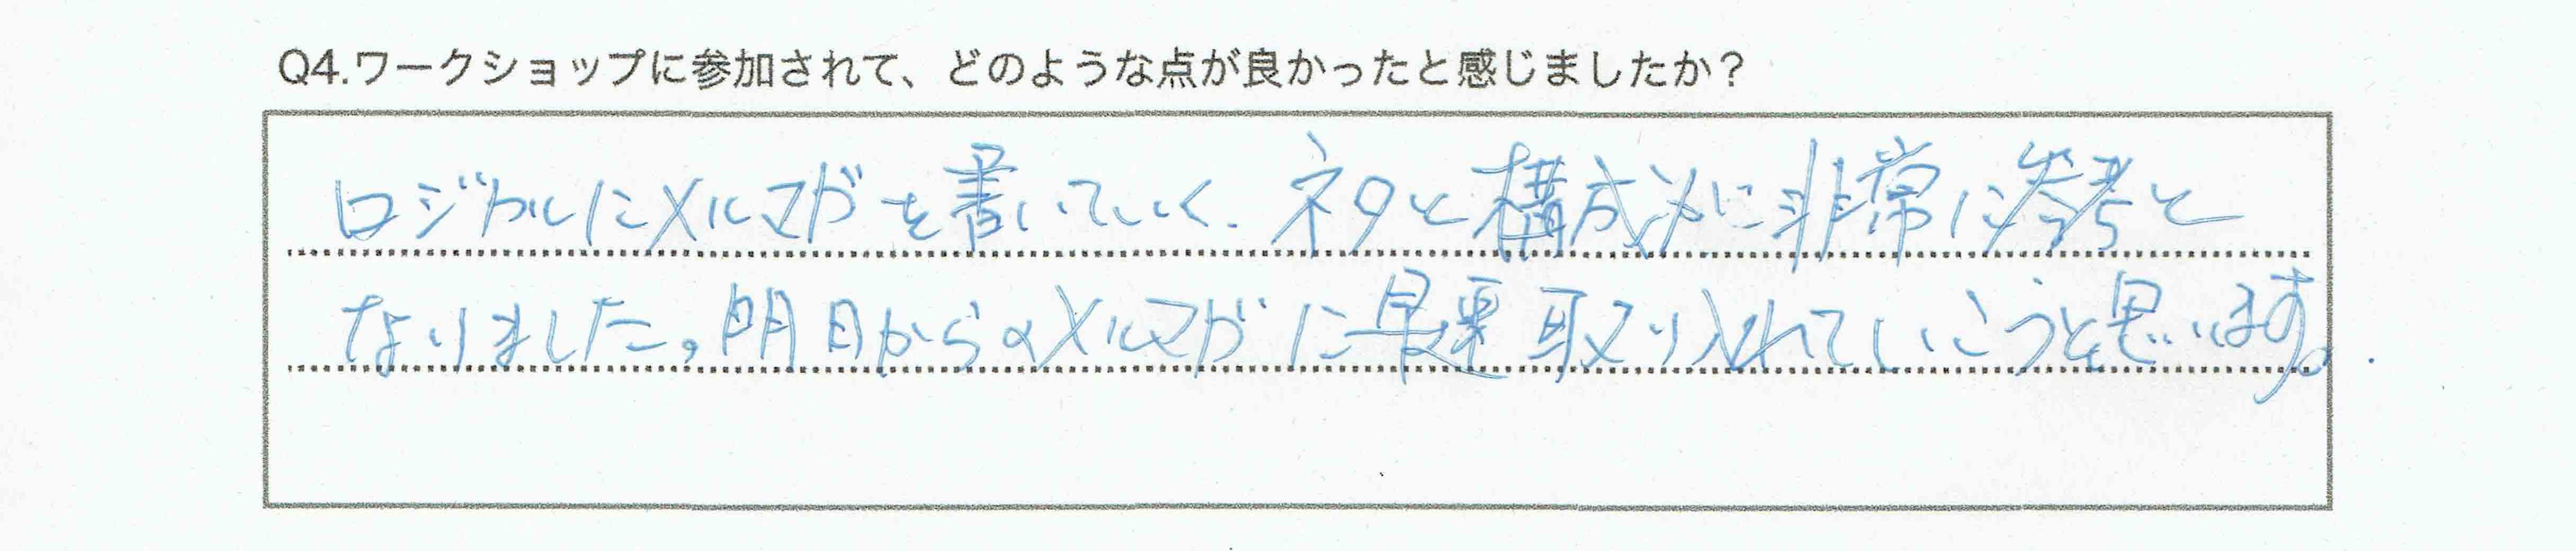 Q4.ワークショップに参加されて、どのような点が良かったと感じましたか？
ロジカルにメルマガを書いていく、ネタと構成共に非常に参考と
なりました。明日からのメルマガに早速取り入れていこうと思います。